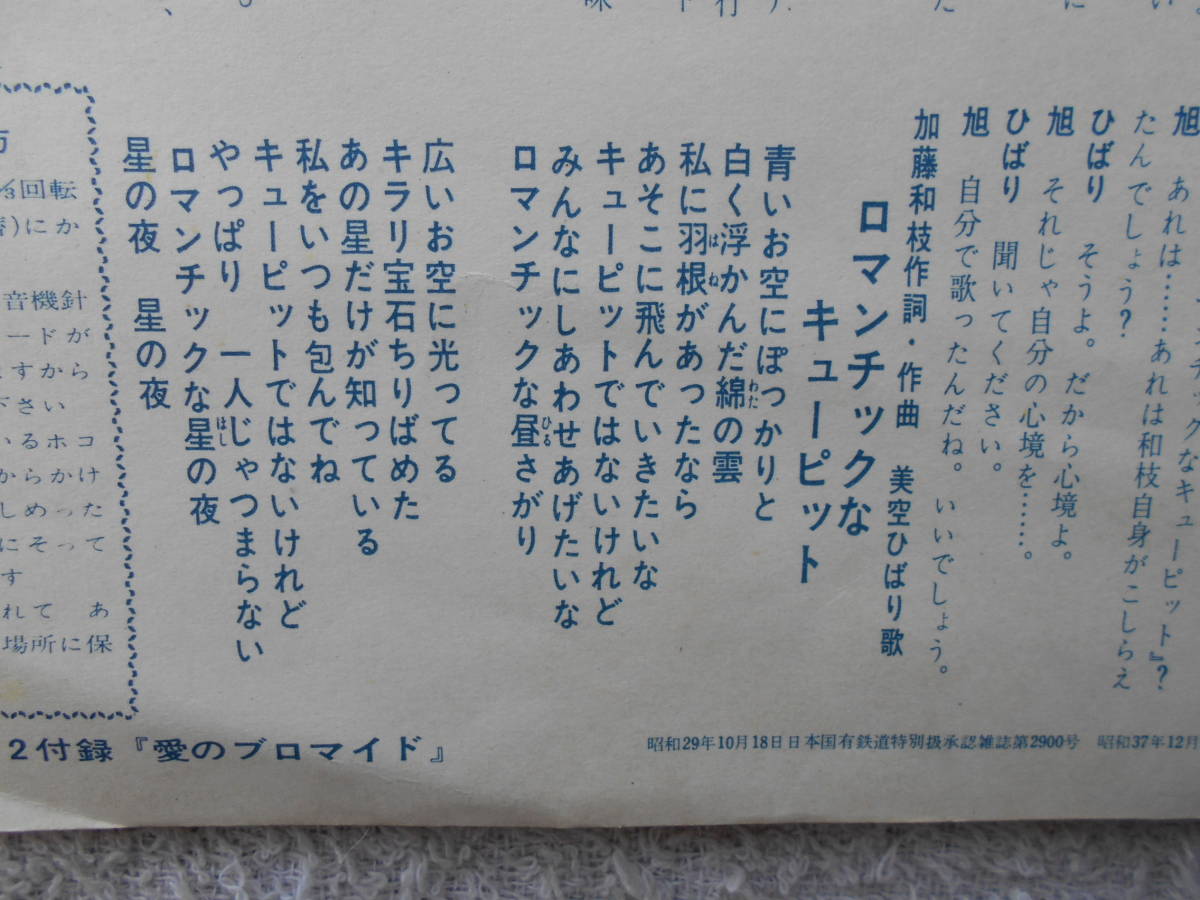 旭　あれは……あれは和枝自身がこしらえ
たんでしょう？
ひばり　そうよ。だから心境よ。
旭　それじゃ自分の心境を……。
ひばり　聞いてください。
旭　自分で歌ったんだね。いいでしょう。
加藤和枝作詞・作曲　美空ひばり歌
ロマンチックな
キューピット
青いお空にぽっかりと
白く浮かんだ綿の雲
私に羽根があったなら
あそこに飛んでいきたいな
キューピットではないけれど
みんなにしあわせあげたいな
ロマンチックな昼さがり
広いお空に光ってる
キラリ宝石ちりばめた
あの星だけが知っている
私をいつも包んでね
キューピットではないけれど
やっぱり　一人じゃつまらない
ロマンチックな星の夜
星の夜　星の夜
回転
にか
音機針
ードが
ますから
下さい
いるホコ
からかけ
しめった
にそって
す
れて　あ
場所に保
2付録『愛のブロマイド』
昭和29年10月18日日本国有鉄道特別扱承認雑誌第2900号　昭和37年12月